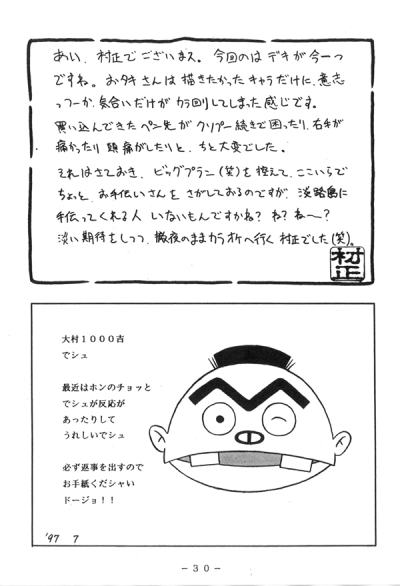 あい、村正でございまス。今回のは デキが今一つ
ですね。おタキさんは 描きたかった キャラだけに、意志
っつーか、気合いだけが カラ回りしてしまった 感じです。
買い込んできた ペン先が クリープー続きで 困ったり、右手が
痛かったり 頭痛がしたりと、ちと大変でした。
それはさておき、ビッグプラン(笑)を 控えて、ここいらで
ちょっと、お手伝いさんを さがしておるのですが、淡路島に
手伝ってくれる人 いないもんですかね? ね? ね〜?
淡い期待をしつつ、徹夜のままカラオケへ行く 村正でした(笑)。
村正
大村1000吉
でシュ
最近はホンのチョッと
でシュが反応が
あったりして
うれしいでシュ
必ず返事を出すので
お手紙くだシャい
ドージョ!!
'97 7
-30-